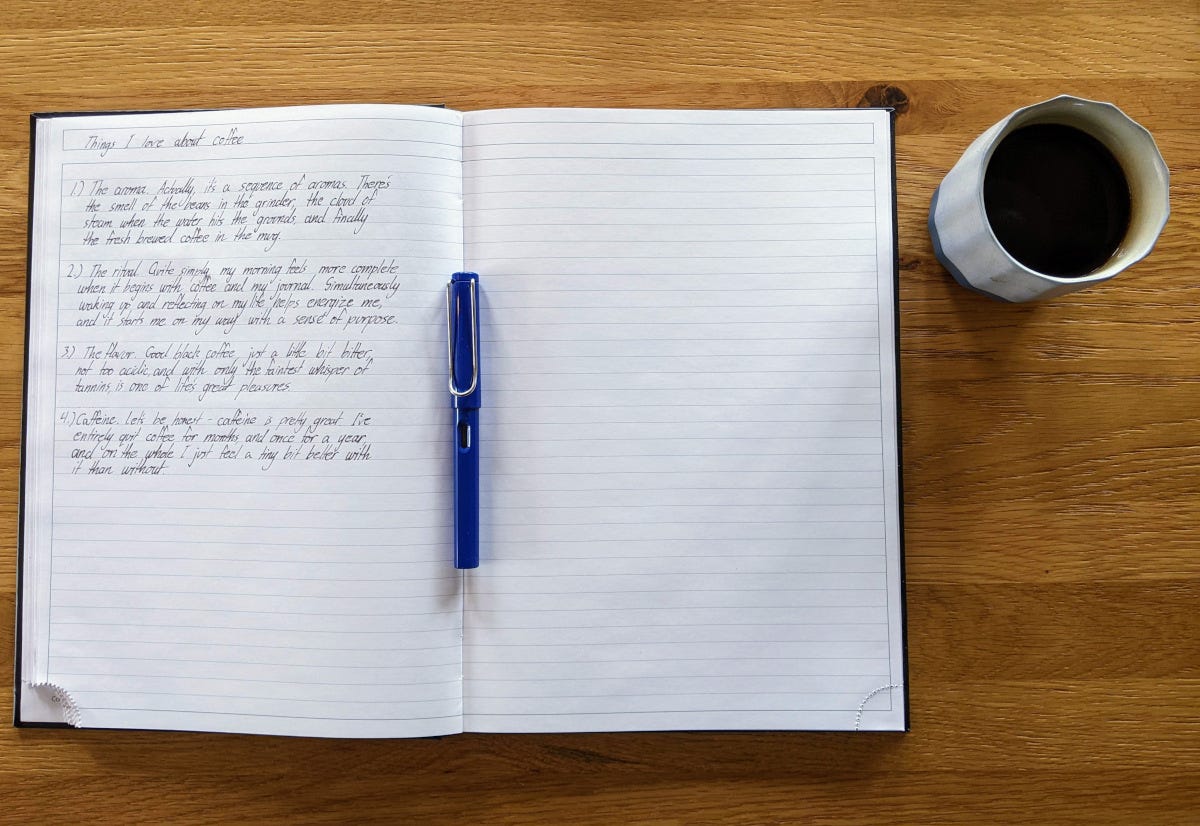 Things I love about coffee
1.) The aroma. Actually, it's a sequence of aromas. There's
the smell of the beans in the grinder, the cloud of
steam when the water hits the grounds, and finally
the fresh brewed coffee in the mug.
2.) The ritual. Quite simply, my morning feels more complete
when it begins with coffee and my journal. Simultaneously
waking up and reflecting on my life helps energize me,
and it starts me on my way with a sense of purpose.
3.) The flavor. Good black coffee, just a little bit bitter,
not too acidic, and with only the faintest whisper of
tannins, is one of life's great pleasures.
4.) Caffeine. Let's be honest - caffeine is pretty great. I've
entirely quit coffee for months and once for a year,
and on the whole I just feel a tiny bit better with
it than without.
Co